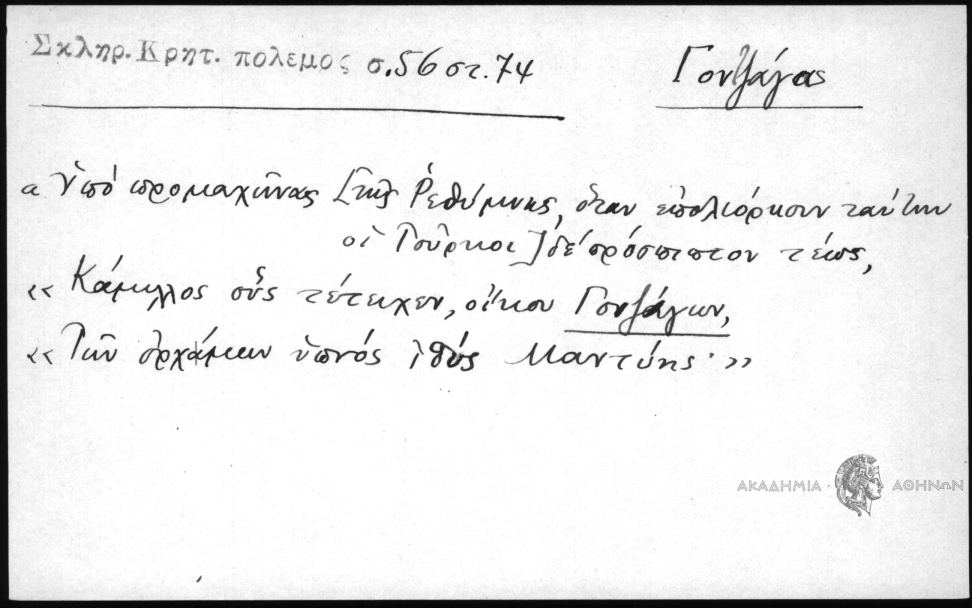 Σκληρ. Κρητ. πολεμος σ. 56 στ. 74
Γονζάγας
« Ὑπό προμαχῶνας [τῆς Ῥεθύμνης, ὅταν ἐπολιόρκουν ταύτην
οἱ Τοῦρκοι] δέ πρόσωπον τέως,
« Κάμιλλος οὗς τέτευχεν, οἴκου Γονζάγων,
« Τῶν ἀρχάμων Μαντύης· »
ΑΚΑΔΗΜΙΑ · ΑΘΗΝΩΝ